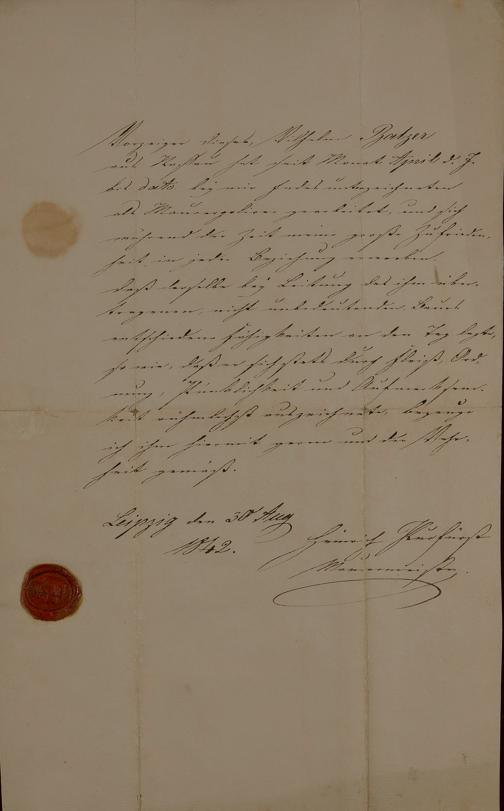 Vorzeiger dieses, Wilhelm Balzer
aus hat seit Monat April d. J.
bis dato bey mir Endes unterzeichneten
als Mauerpolier gearbeitet, und sich
während der Zeit meine große Zufrieden-
heit in jeder Beziehung erworben.
Daß derselbe bey Leitung des ihm über-
tragenen, nicht unbedeutenden Baues
entschiedene Fähigkeiten an den Tag legte,
so wie, daß er sich stets durch Fleiß, Ord-
nung, Pünktlichkeit und Aufmerksam-
keit rühmlichst auszeichnete, bezeuge
ich ihm hiermit gern und der Wahr-
heit gemäß.
Leipzig den 30 Aug
1842.
Heinrich Purfürst
Mauermeister.